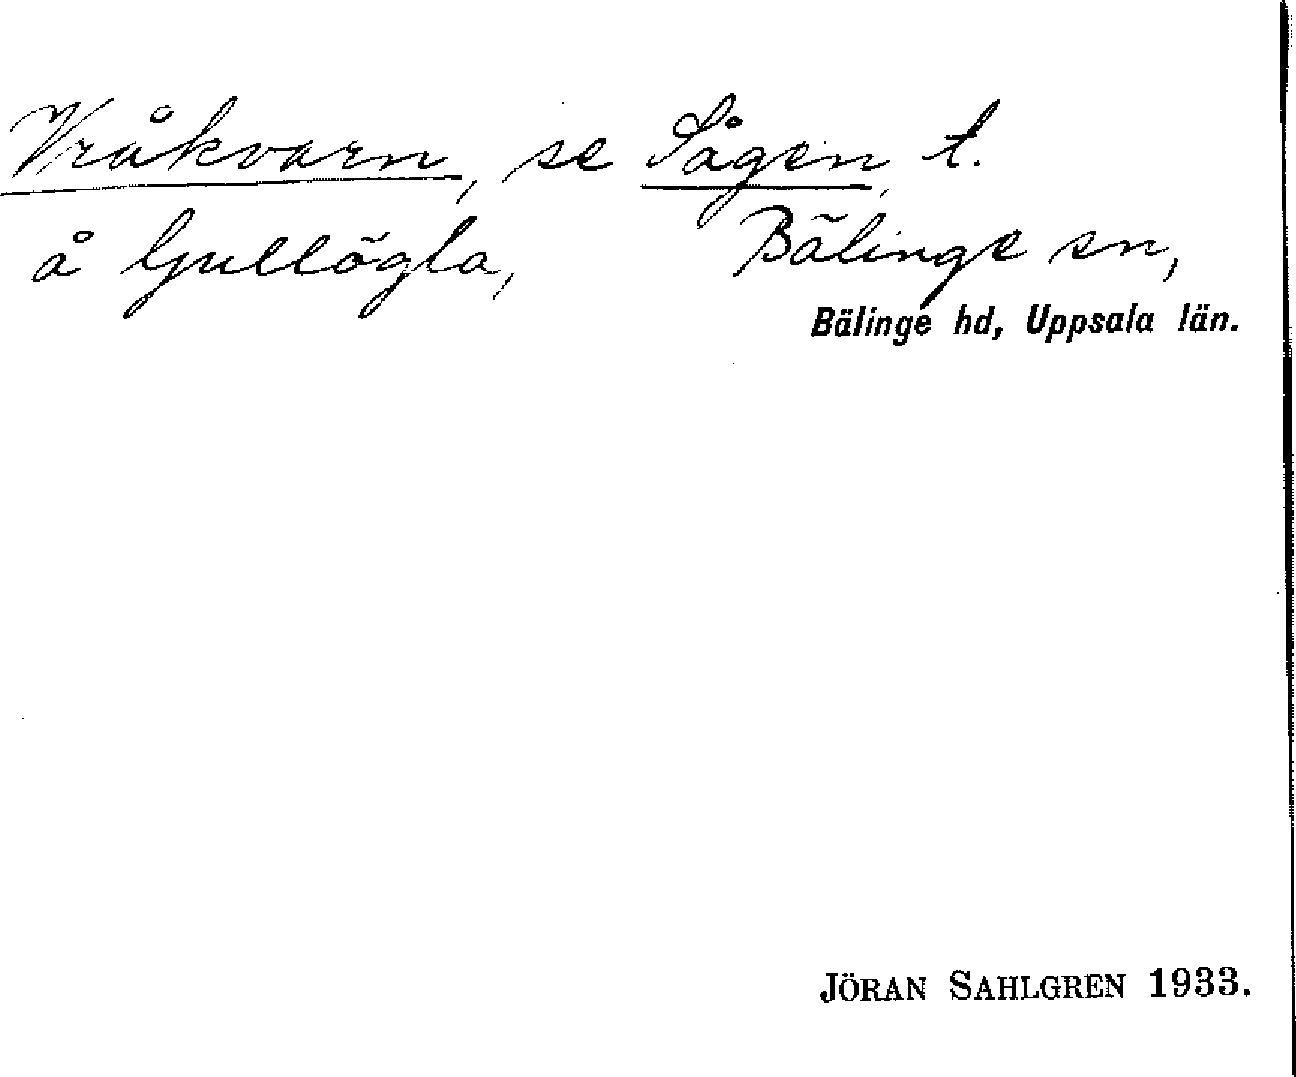 Vråkvarn, se Sågen, t.
å Gullögla, Bälinge sn,
Bälinge hd, Uppsala län.
JÖRAN SAHLGREN 1933.